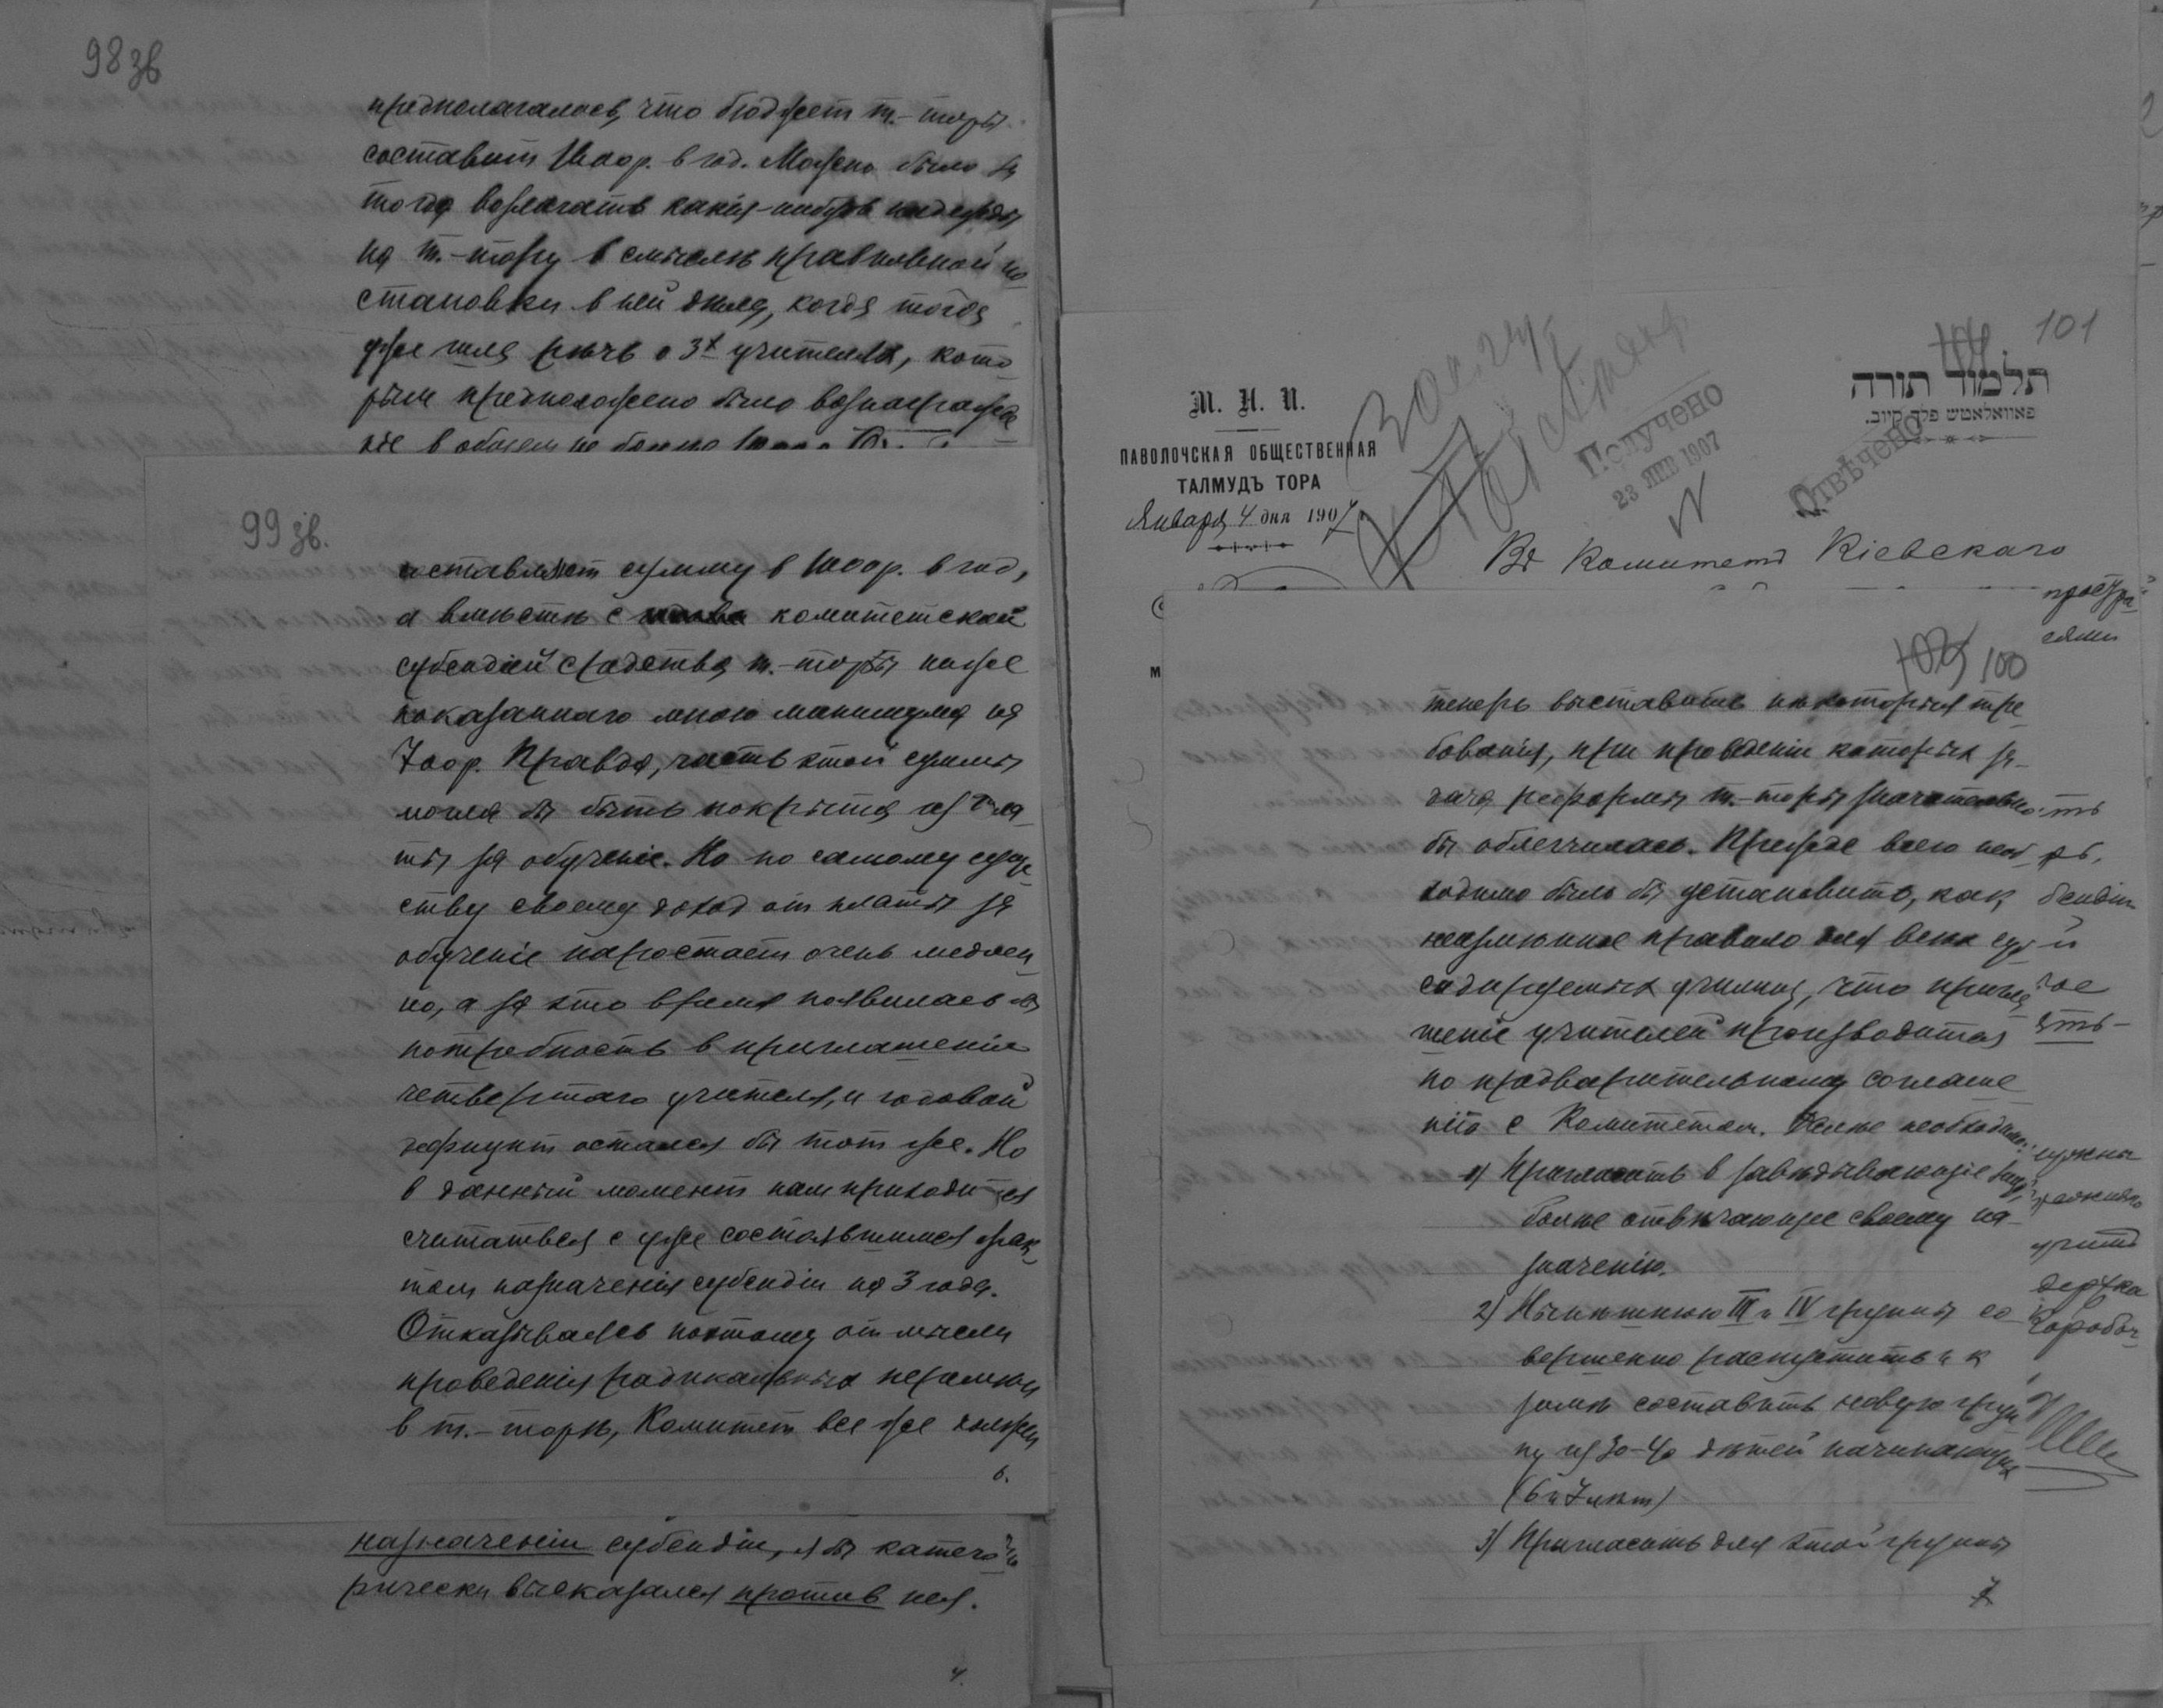 98 зв
предполагалось, что бюджет т.-торы
составит 1400р. в год. Можно было ли
тогда возлагать какия-нибудь надежды
на т.-тору в смысле правильной по
становки в ней дела, когда тогда
уже шла речь о 3х учителях, кото
рым предположено было вознагражде
ние в общем не более
99 зв.
составляет сумму в 1400р. в год,
а вместе с комитетской
субсидией средства т.-торы ниже
показаннаго мною минимума на
700р. Правда, часть этой суммы
могла бы быть покрыта из пла
ты за обучение. Но по самому суще
ству своему доход от платы за
обучение наростает очень медлен
но, а за это время появилась бы
потребность в приглашении
четвертаго учителя, и годовой
дефицит остался бы тот же. Но
в данный момент нам приходится
считаться с уже состоявшимся фак
том назначения субсидии на 3 года.
Отказываясь поэтому от мысли
проведения радикальных перемен
в т.-торе, Комитет все же должен
6.
назначении субсидии, я бы катего
рически высказался против нея.
4.
101
תלמוד תורה
פאוואלאטש פלך קיוב.
М. Н. П.
ПАВОЛОЧСКАЯ ОБЩЕСТВЕННАЯ
ТАЛМУДЪ ТОРА
Января 4 дня 1907
Получено
23 ЯНВ 1907
Отвѣчено
Въ Комитетъ Кіевскаго
100
теперь выставить некоторыя тре
бования, при проведении которых за-
дача реформы т.-торы значительно
бы облегчилась. Прежде всего необ
ходимо было бы установить, как
неизменное правило для всех суб
сидируемых училищ, что пригла
шение учителей производится
по предварительному соглаше
нию с Комитетом. Далее необходимо:
1) Пригласить в заведывающие лицо,
более отвечающее своему на-
значению.
2) Нынешнюю III и IV группы со
вершенно распустить и к
зиме составить новую груп
пу из 30-40 детей начинающих
(6 и 7 лет)
3) Пригласить для этой группы
7